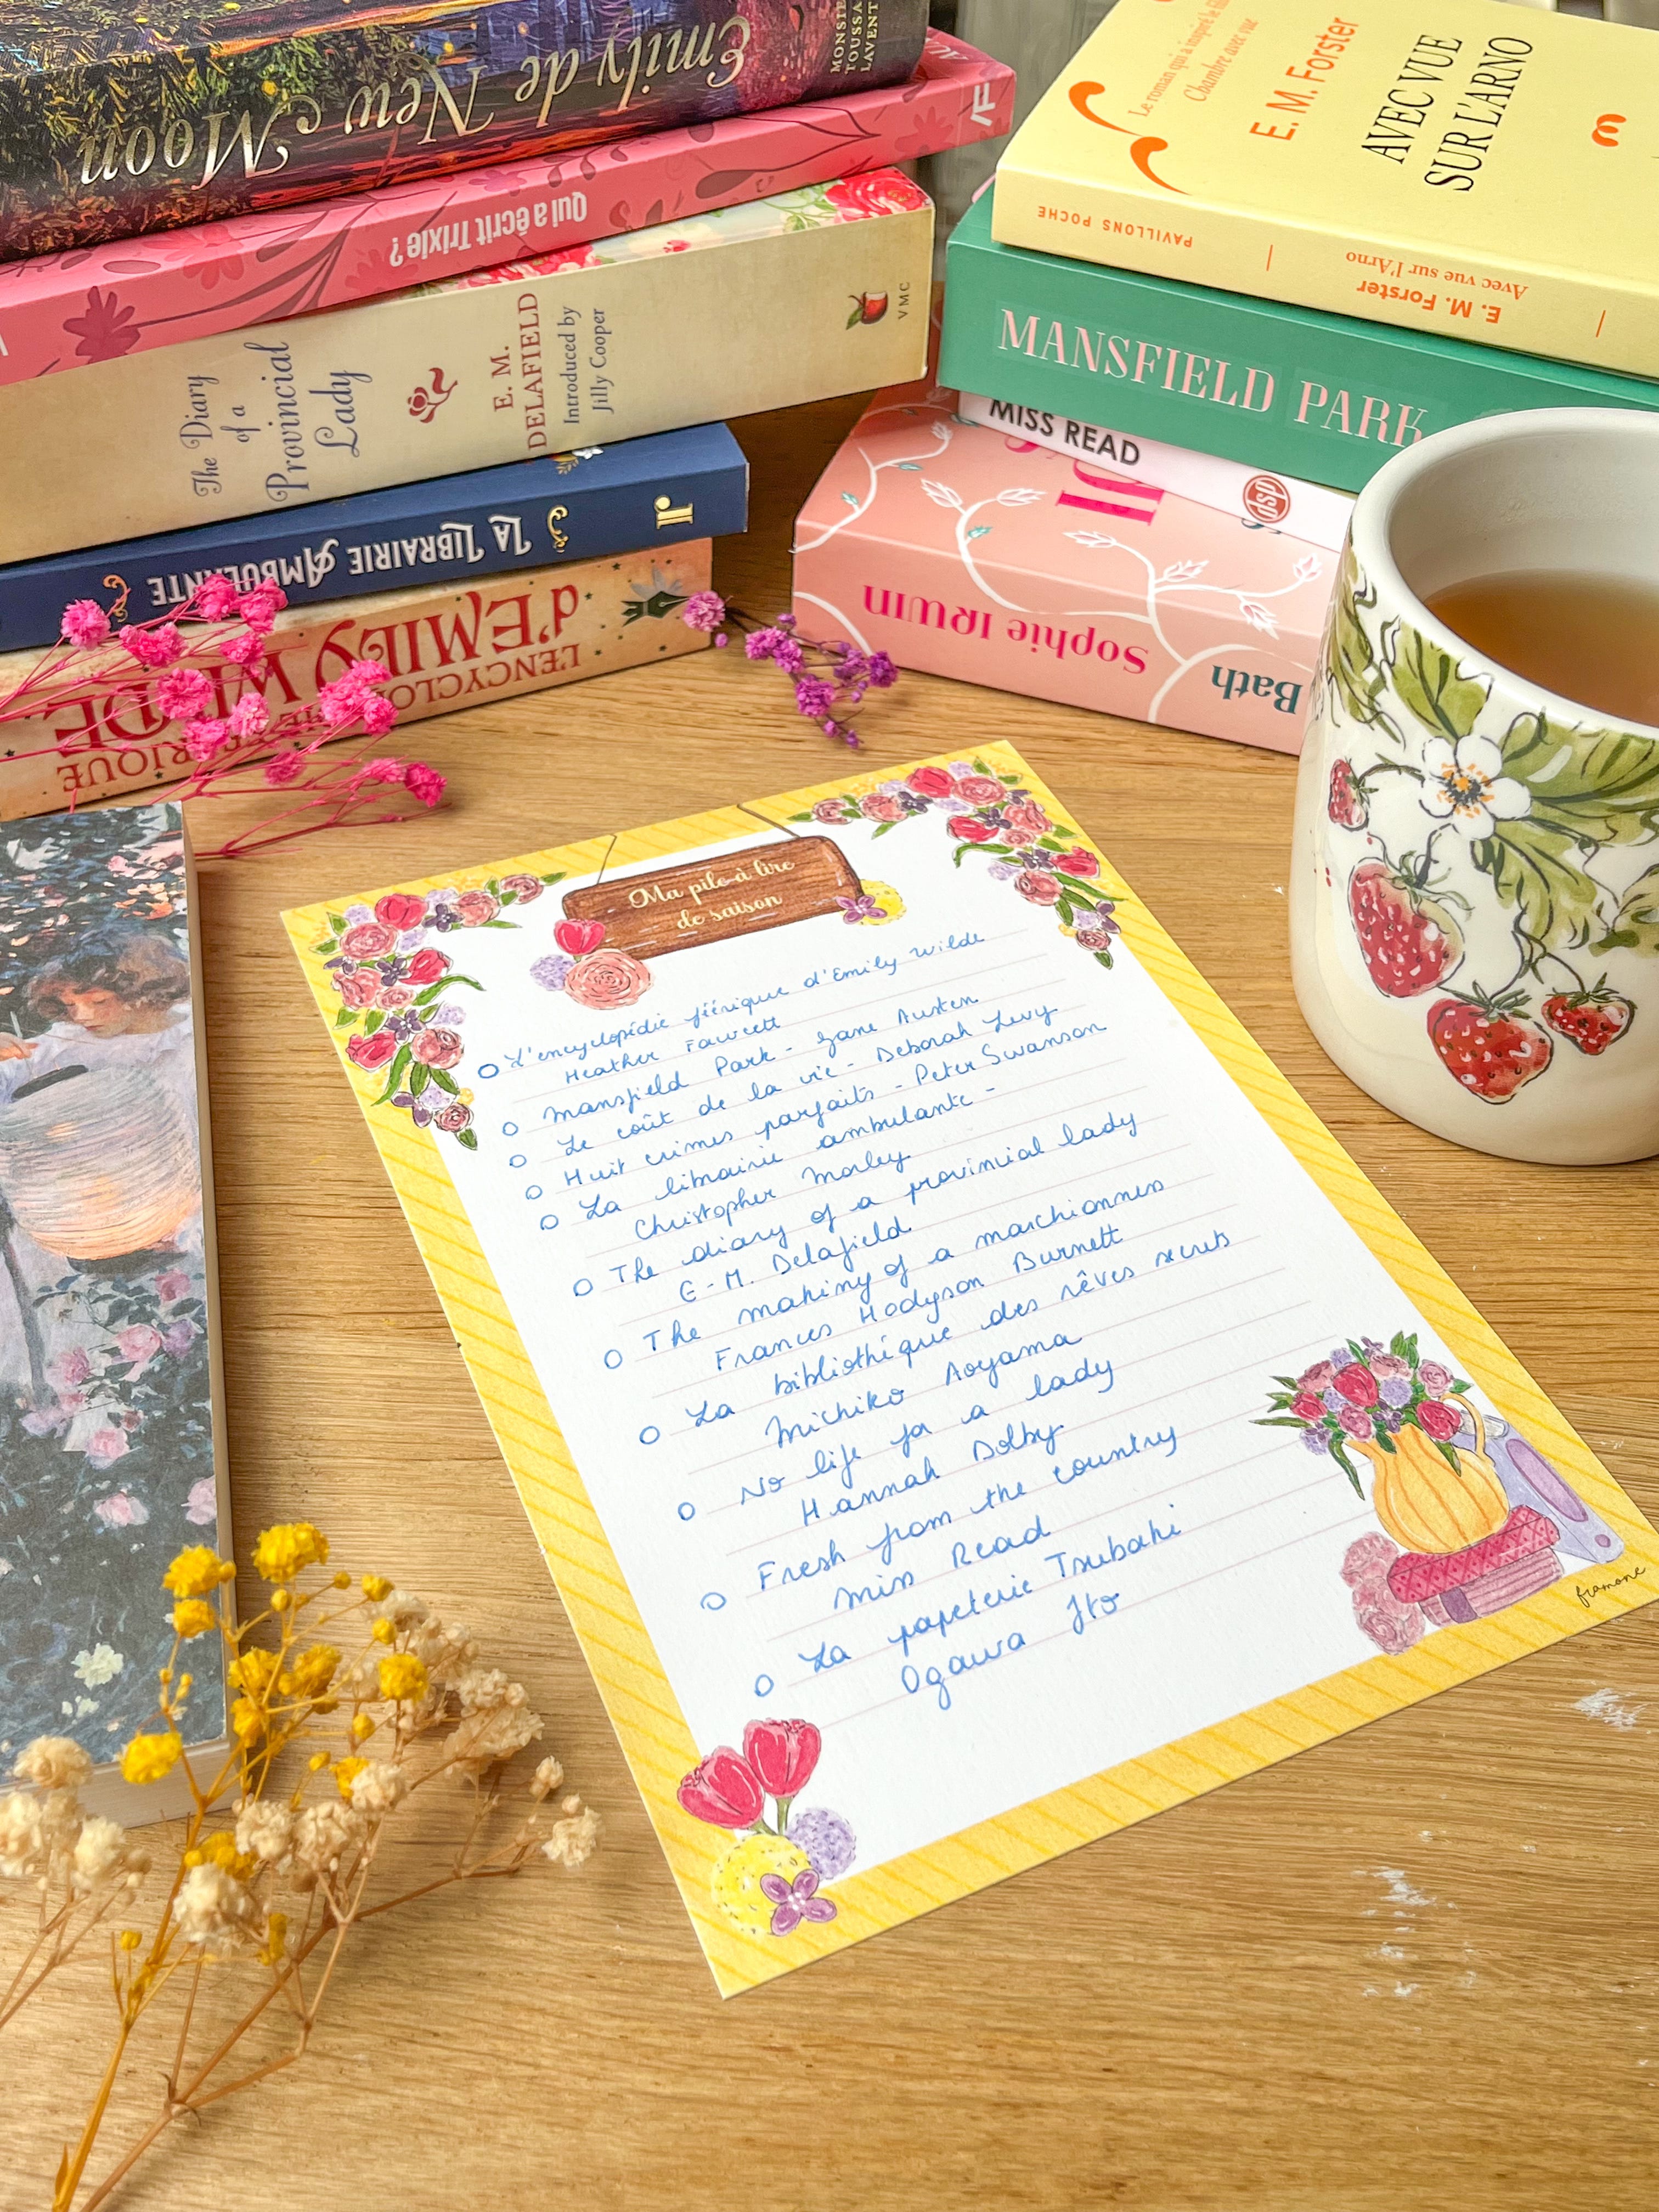 Emily de New Moon
MONSIEUR
TOUSSAINT
LAVENTURE
Qui a écrit Trixie ?
The Diary
of a
Provincial
Lady
E. M.
DELAFIELD
Introduced by
Jilly Cooper
VMC
LA LIBRAIRIE AMBULANTE
L'ENCYCLOPÉDIE FÉERIQUE
d'EMILY WILDE
Le roman qui a inspiré le film
Chambre avec vue
E. M. Forster
AVEC VUE
SUR L'ARNO
PAVILLONS POCHE
E. M. Forster
Avec vue sur l'Arno
MANSFIELD PARK
MISS READ
dsp
Sophie IRWIN
Bath
Ma pile à lire
de saison
L'encyclopédie féérique d'Emily Wilde
Heather Fawcett
Mansfield Park - Jane Austen
Le coût de la vie - Deborah Levy
Huit crimes parfaits - Peter Swanson
La librairie ambulante -
Christopher Morley
The diary of a provincial lady
E-M. Delafield
The making of a marchionness
Frances Hodgson Burnett
La bibliothèque des rêves secrets
Michiko Aoyama
No life for a lady
Hannah Dolby
Fresh from the country
Miss Read
La papeterie Tsubaki
Ogawa Ito
framone